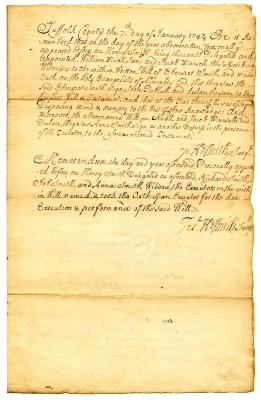 Suffolk County the 7th day of January 174 Be it Re
membred that on the day of the year abovewritten personally
appeared before me Henry Smith being thereunto Deligated and
appointed William Nicoll Junr and Jacob Wansell the Subscribing
Witnesses to the within Written Will of Ebenezer Smith, and made
Oath on the Holy Evangelists of Almighty God, that they saw the
said Ebenezer Smith Sign Seal Publish and declare the same to be
his last Will & Testament, and that at the time thereof he was of
Disposing Mind & memory to the best of their knowledge. And
the said William
Nicoll and Jacob Wansell
Anna Smith Sign as another Evidence in the presence
of the Testator, to the abovementioned Testament.
Hry Smith Surrgt
Memorandum the day and year aforesaid Personally appea
red before me Henry Smith Deligated as aforesaid Richard Smith
Job Smith, and Anna Smith Widdow, the Executors in the with
in Will named, & took the Oath of an Executor for the due
Execution & performance of the said Will.
Test Hry Smith Surrgt